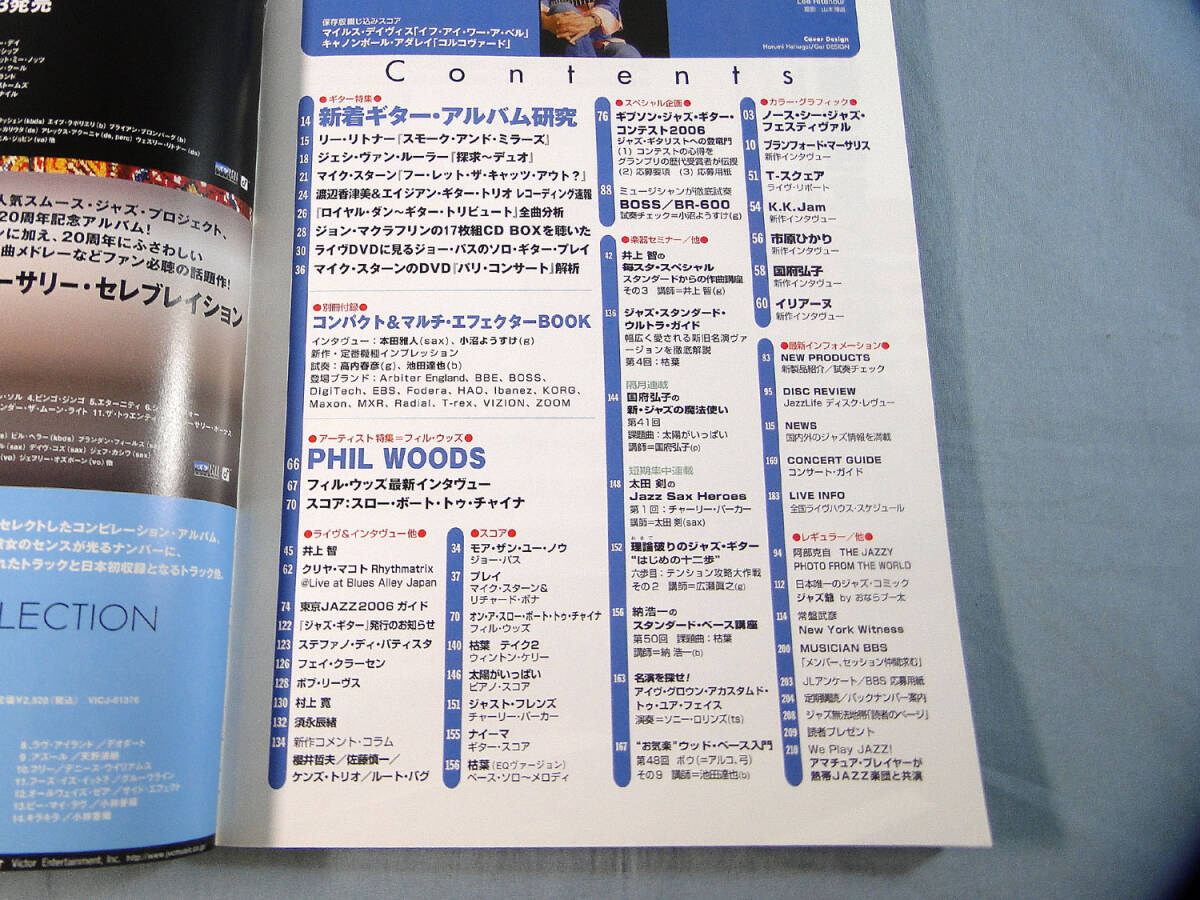 3発売
人気スムース・ジャズ・プロジェクト、
20周年記念アルバム!
ンに加え、20周年にふさわしい
曲メドレーなどファン必聴の話題作!
ーサリー・セレブレイション
セレクトしたコンピレーション・アルバム。
彼女のセンスが光るナンバーに、
れたトラックと日本初収録となるトラック他、
LECTION
8.ラヴ・アイランド/デオダート
14.キラキラ/小林香織
Victor Entertainment, Inc. http://www.jvcmusic.co.jp
Lee Ritenour
保存版綴じ込みスコア
マイルス・デイヴィス「イフ・アイ・ワー・ア・ベル」
キャノンボール・アダレイ「コルコヴァード」
Cover Design
Contents
●ギター特集●
14 新着ギター・アルバム研究
15 リー・リトナー『スモーク・アンド・ミラーズ』
18 ジェシ・ヴァン・ルーラー『探求〜デュオ』
21 マイク・スターン『フー・レット・ザ・キャッツ・アウト?』
24 渡辺香津美&エイジアン・ギター・トリオ レコーディング速報
26 『ロイヤル・ダン〜ギター・トリビュート』全曲分析
28 ジョン・マクラフリンの17枚組CD BOXを聴いた
30 ライヴDVDに見るジョー・パスのソロ・ギター・プレイ
36 マイク・スターンのDVD『パリ・コンサート』解析
●別冊付録●
コンパクト&マルチ・エフェクターBOOK
インタヴュー:本田雅人(sax)、小沼ようすけ(g)
新作・定番機種インプレッション
試奏:高内春彦(g)、池田達也(b)
登場ブランド:Arbiter England、BBE、BOSS、
DigiTech、EBS、Fodera、HAO、Ibanez、KORG、
Maxon、MXR、Radial、T-rex、VIZION、ZOOM
●アーティスト特集=フィル・ウッズ●
66 PHIL WOODS
67 フィル・ウッズ最新インタヴュー
70 スコア:スロー・ボート・トゥ・チャイナ
●ライヴ&インタヴュー他●
45 井上 智
62 クリヤ・マコト Rhythmatrix
@Live at Blues Alley Japan
74 東京JAZZ2006 ガイド
122 『ジャズ・ギター』発行のお知らせ
123 ステファノ・ディ・バティスタ
126 フェイ・クラーセン
128 ポブ・リーヴス
130 村上 寛
132 須永辰緒
134 新作コメント・コラム
櫻井哲夫/佐藤慎一/
ケンズ・トリオ/ルート・バグ
●スコア●
34 モア・ザン・ユー・ノウ
ジョー・パス
37 プレイ
マイク・スターン&
リチャード・ボナ
70 オン・ア・スロー・ボート・トゥ・チャイナ
フィル・ウッズ
140 枯葉 テイク2
ウィントン・ケリー
146 太陽がいっぱい
ピアノ・スコア
151 ジャスト・フレンズ
チャーリー・パーカー
155 ナイーマ
ギター・スコア
156 枯葉(EQヴァージョン)
ベース・ソロ〜メロディ
●スペシャル企画●
76 ギブソン・ジャズ・ギター・
コンテスト2006
ジャズ・ギタリストへの登竜門
(1) コンテストの心得を
グランプリの歴代受賞者が伝授
(2) 応募要項 (3) 応募用紙
88 ミュージシャンが徹底試奏
BOSS/BR-600
試奏チェック=小沼ようすけ(g)
●楽器セミナー/他●
42 井上 智の
毎スタ・スペシャル
スタンダードからの作曲講座
その3 講師=井上 智(g)
136 ジャズ・スタンダード・
ウルトラ・ガイド
幅広く愛される新旧名演ヴァ
ージョンを徹底解説
第4回:枯葉
隔月連載
144 国府弘子の
新・ジャズの魔法使い
第41回
課題曲:太陽がいっぱい
講師=国府弘子(p)
短期集中連載
148 太田 剣の
Jazz Sax Heroes
第1回:チャーリー・パーカー
講師=太田 剣(sax)
152 理論破りのジャズ・ギター
“はじめの十二歩”
六歩目:テンション攻略大作戦
その2 講師=広瀬眞之(g)
156 納浩一の
スタンダード・ベース講座
第50回 課題曲:枯葉
講師=納 浩一(b)
163 名演を探せ!
アイヴ・グロウン・アカスタムド・
トゥ・ユア・フェイス
演奏=ソニー・ロリンズ(ts)
167 “お気楽”ウッド・ベース入門
第48回 ボウ(=アルコ、弓)
その9 講師=池田達也(b)
●カラー・グラフィック●
03 ノース・シー・ジャズ・
フェスティヴァル
10 ブランフォード・マーサリス
新作インタヴュー
51 T-スクェア
ライヴ・リポート
54 K.K.Jam
新作インタヴュー
56 市原ひかり
新作インタヴュー
58 国府弘子
新作インタヴュー
60 イリアーヌ
新作インタヴュー
●最新インフォメーション●
83 NEW PRODUCTS
新製品紹介/試奏チェック
95 DISC REVIEW
JazzLife ディスク・レヴュー
115 NEWS
国内外のジャズ情報を満載
169 CONCERT GUIDE
コンサート・ガイド
183 LIVE INFO
全国ライヴハウス・スケジュール
●レギュラー/他●
94 阿部克自 THE JAZZY
PHOTO FROM THE WORLD
112 日本唯一のジャズ・コミック
ジャズ爺 by おならブー太
114 常盤武彦
New York Witness
200 MUSICIAN BBS
「メンバー、セッション仲間求む」
203 JLアンケート/BBS 応募用紙
204 定期購読/バックナンバー案内
208 ジャズ無法地帯「読者のページ」
209 読者プレゼント
210 We Play JAZZ!
アマチュア・プレイヤーが
熱帯JAZZ楽団と共演